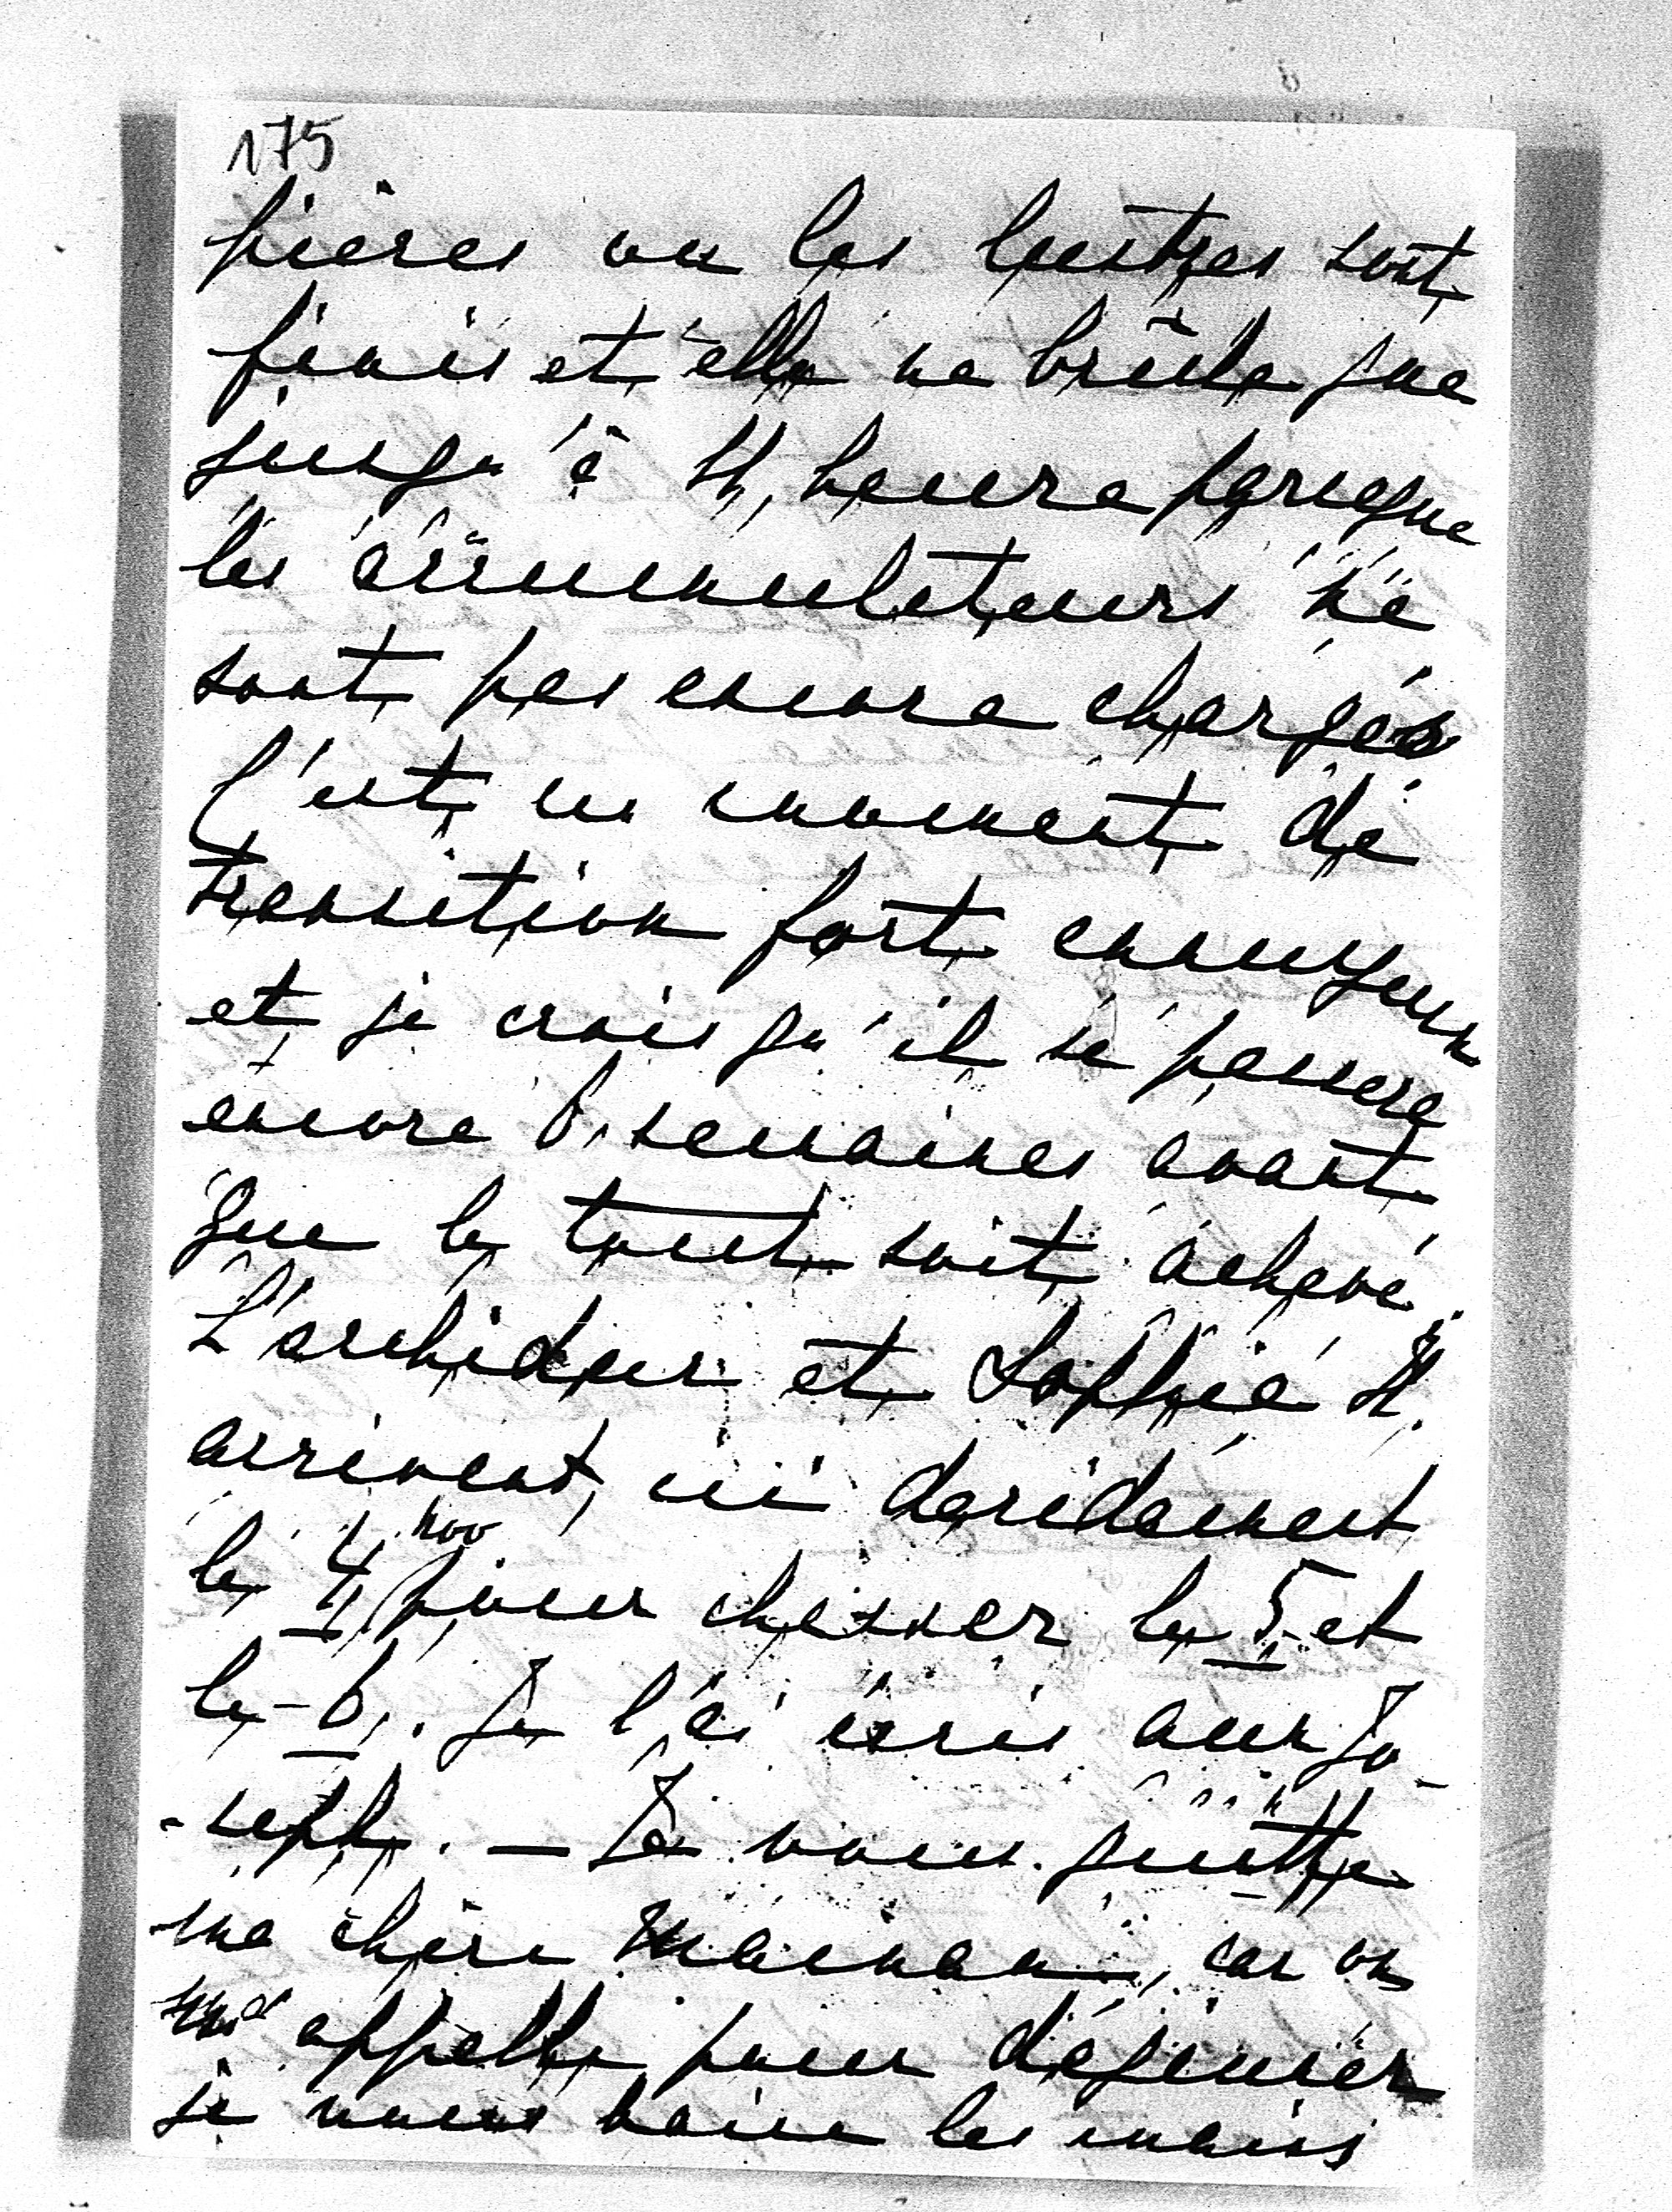 175
pièces ou les lustres sont
finis et elle ne brûle que
jusqu'à 11, heure parceque
les accumulateurs ne
sont pas encore chargés
C'est un moment de
transition fort ennuyeux
et je crois qu'il se passera
encore 6 semaines avant
que le tout soit achevé.
L'archiduc et Sophie H.
arrivent, ici decidement
le 4 nov pour chasser le 5 et
le 6. Je l'ai écris aux Jo-
-seph. — Je vous quitte
ma chère Maman, car on
m'appelle pour déjeuner
je vous baise les mains